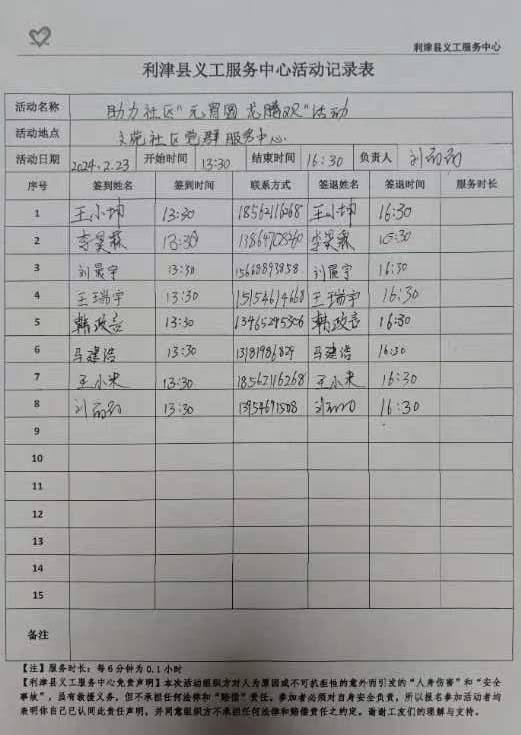 利津县义工服务中心
利津县义工服务中心活动记录表
活动名称 助力社区"元宵圆 龙腾欢"活动
活动地点 文苑社区党群服务中心
活动日期 2024.2.23 开始时间 13:30 结束时间 16:30 负责人 刘
序号 签到姓名 签到时间 联系方式 签退姓名 签退时间 服务时长
1 王小坤 13:30 18562116268 王小坤 16:30
2 李昊霖 13:30 李昊霖 16:30
3 刘晨宇 13:30 15668893858 刘晨宇 16:30
4 王瑞宇 13:30 15154614668 王瑞宇 16:30
5 韩政言 13:30 13465295306 韩政言 16:30
6 马建浩 13:30 13181986829 马建浩 16:30
7 王小米 13:30 18562116268 王小米 16:30
8 刘 13:30 13954691508 刘 16:30
9
10
11
12
13
14
15
备注
【注】服务时长：每6分钟为0.1小时
【利津县义工服务中心免责声明】本次活动组织方对人为原因或不可抗拒性的意外而引发的“人身伤害”和“安全
事故”，虽有救援义务，但不承担任何法律和“赔偿”责任。参加者必须对自身安全负责，所以报名参加活动者均
表明你自己已认同此责任声明，并同意组织方不承担任何法律和赔偿责任之约定。谢谢工友们的理解与支持。